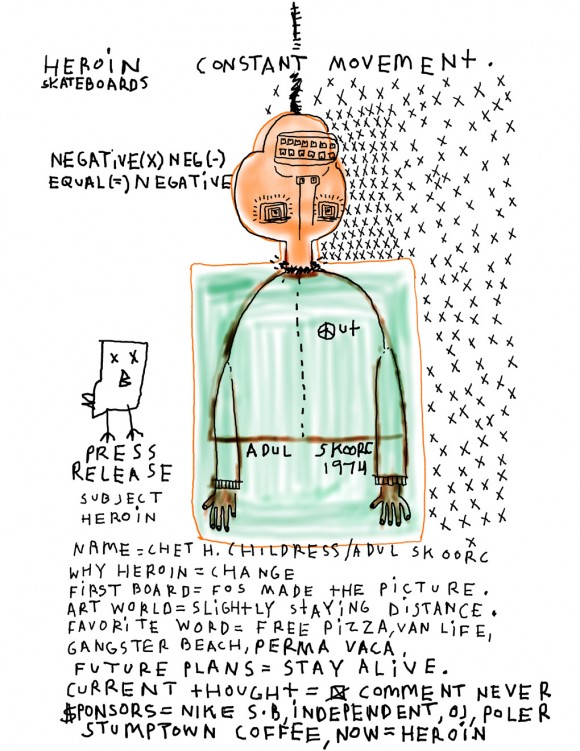 HEROIN
SKATEBOARDS
CONSTANT MOVEMENT.
NEGATIVE(X) NEG(-)
EQUAL(=) NEGATIVE
ut
ADUL SKOORC
1974
B
PRESS
RELEASE
SUBJECT
HEROIN
NAME = CHET H. CHILDRESS/ADUL SKOORC
WHY HEROIN = CHANGE
FIRST BOARD = FOS MADE THE PICTURE.
ART WORLD = SLIGHTLY STAYING DISTANCE.
FAVORITE WORD = FREE PIZZA, VAN LIFE,
GANGSTER BEACH, PERMA VACA,
FUTURE PLANS = STAY ALIVE.
CURRENT THOUGHT = COMMENT NEVER
$PONSORS = NIKE S.B, INDEPENDENT, OJ, POLER
STUMPTOWN COFFEE, NOW = HEROIN